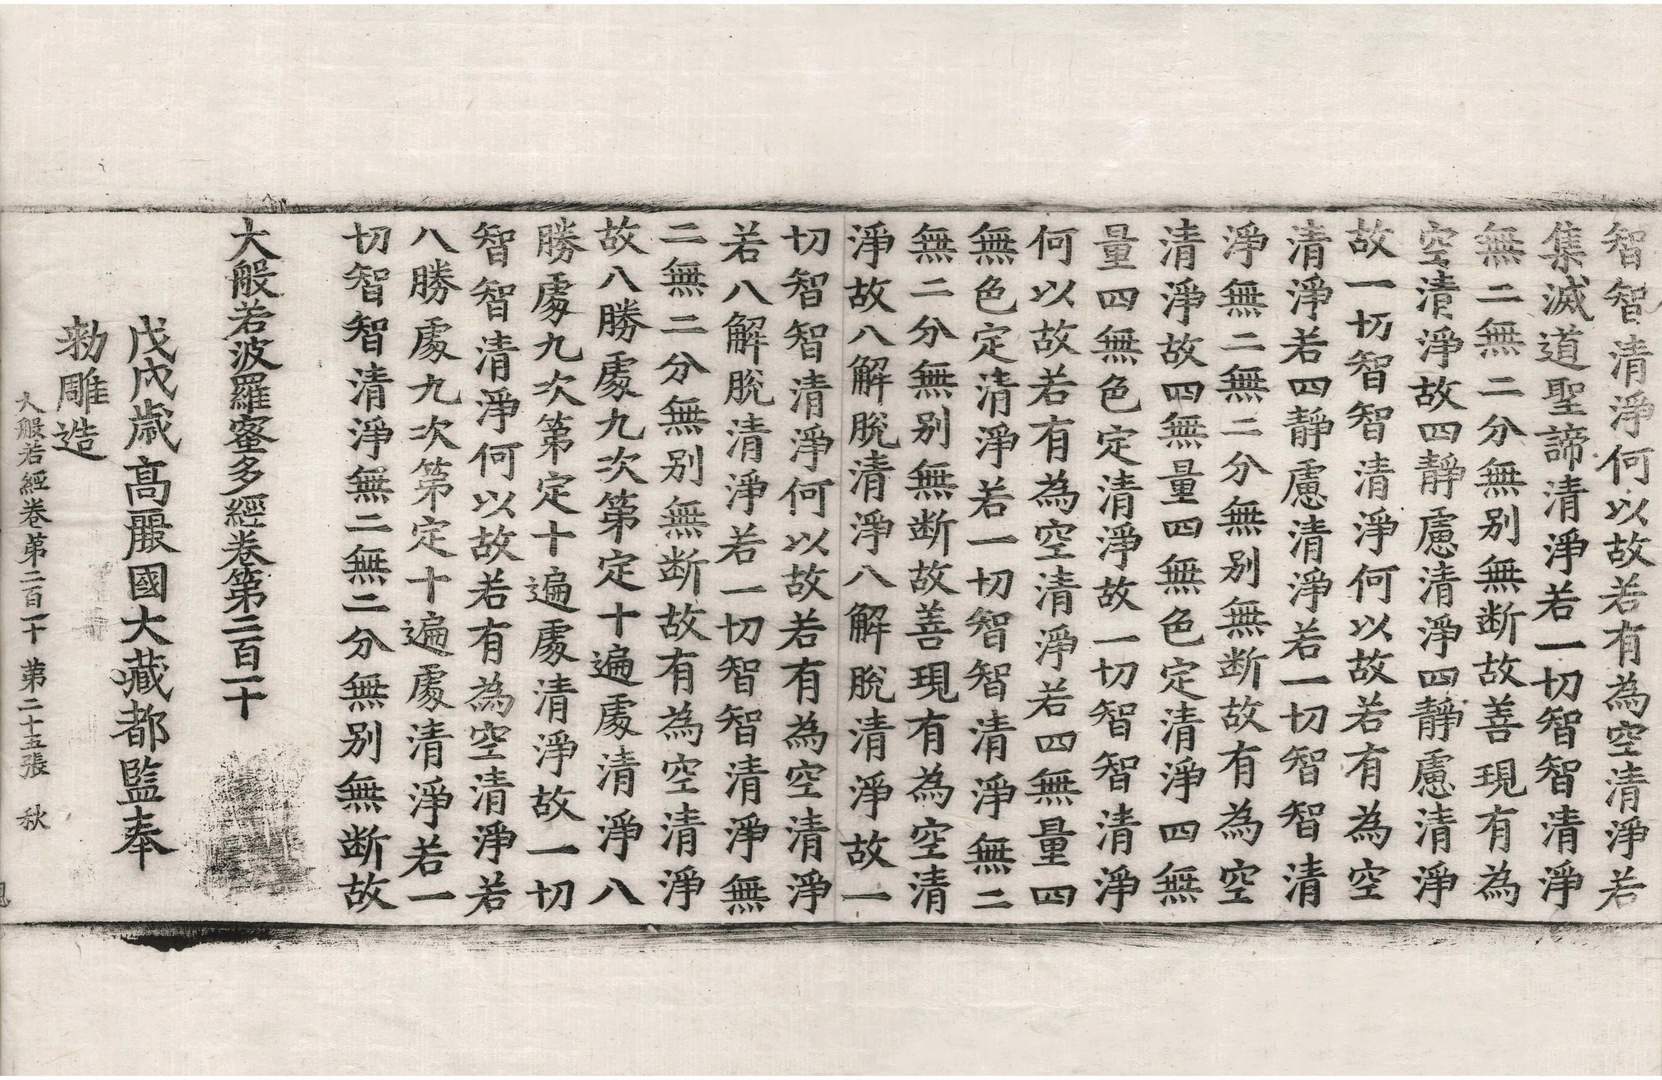 智智清淨何以故若有為空清淨若
集滅道聖諦清淨若一切智智清淨
無二無二分無別無斷故善現有為
空清淨故四靜慮清淨四靜慮清淨
故一切智智清淨何以故若有為空
清淨若四靜慮清淨若一切智智清
淨無二無二分無別無斷故有為空
清淨故四無量四無色定清淨四無
量四無色定清淨故一切智智清淨
何以故若有為空清淨若四無量四
無色定清淨若一切智智清淨無二
無二分無別無斷故善現有為空清
淨故八解脫清淨八解脫清淨故一
切智智清淨何以故若有為空清淨
若八解脫清淨若一切智智清淨無
二無二分無別無斷故有為空清淨
故八勝處九次第定十遍處清淨八
勝處九次第定十遍處清淨故一切
智智清淨何以故若有為空清淨若
八勝處九次第定十遍處清淨若一
切智智清淨無二無二分無別無斷故
大般若波羅蜜多經卷第二百一十
戊戌歲高麗國大藏都監奉
勑雕造
大般若經卷第二百一十 第二十五張 秋